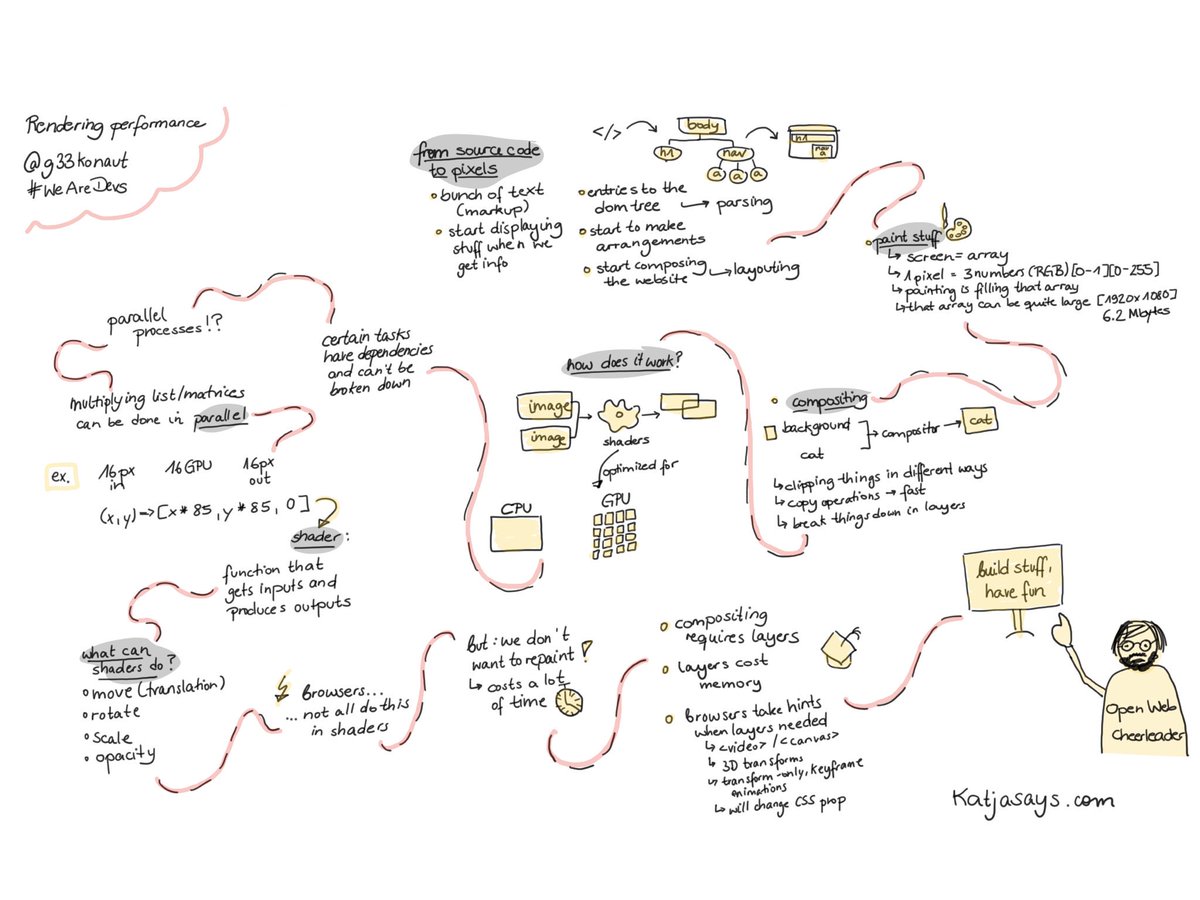 Rendering performance
@g33konaut
#WeAreDevs
from source code
to pixels
bunch of text
(markup)
start displaying
stuff when we
get info
</>
body
h1
nav
a
a
a
h1
nav
a
entries to the
dom tree
parsing
start to make
arrangements
start composing
the website
layouting
paint stuff
screen = array
1 pixel = 3 numbers (RGB) [0-1][0-255]
painting is filling that array
that array can be quite large [1920x1080]
6.2 Mbytes
compositing
background
cat
compositor
cat
clipping things in different ways
copy operations → fast
break things down in layers
how does it work?
image
image
shaders
optimized for
CPU
GPU
certain tasks
have dependencies
and can't be
broken down
parallel
processes!?
multiplying list/matrices
can be done in parallel
ex.
16px
in
16 GPU
16px
out
(x,y) => [x * 85, y * 85, 0]
shader:
function that
gets inputs and
produces outputs
what can
shaders do?
move (translation)
rotate
scale
opacity
Browsers...
... not all do this
in shaders
But: we don't
want to repaint!
costs a lot
of time
compositing
requires layers
layers cost
memory
Browsers take hints
when layers needed
<video> / <canvas>
3D transforms
transform-only, keyframe
animations
will change CSS prop
build stuff,
have fun
Open Web
Cheerleader
Katjasays.com